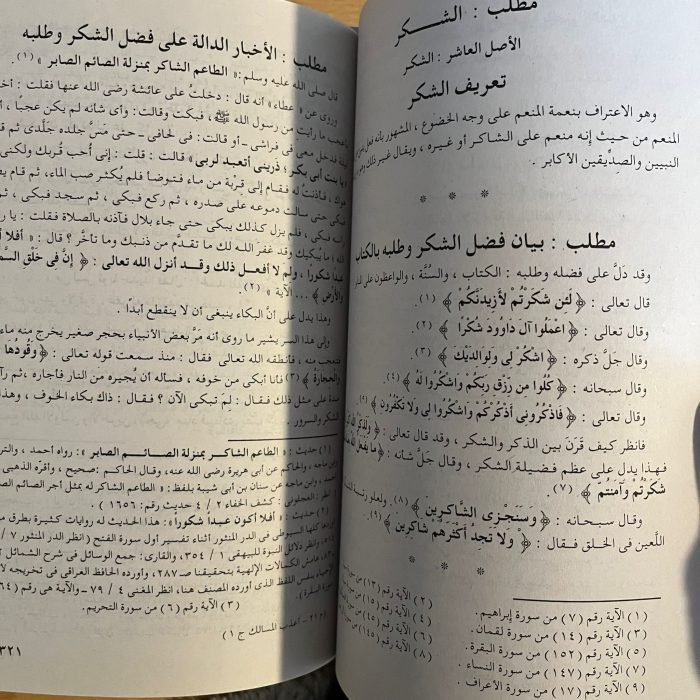 مطلب : الشكر
الأصل العاشر : الشكر
تعريف الشكر
وهو الاعتراف بنعمة المنعم على وجه الخضوع ، المشهور بأنه فعل
المنعم من حيث إنه منعم على الشاكر أو غيره ، ويقال غير ذلك
النبيين والصديقين الأكابر .
* * *
مطلب : بيان فضل الشكر وطلبه بالكتاب
وقد دَلَّ على فضله وطلبه : الكتاب ، والسنَّة ، والواعظون على
قال تعالى : ﴿ لَئِن شَكَرْتُمْ لأَزِيدَنَّكُمْ ﴾ (١).
وقال تعالى : ﴿ اعْمَلُوا آلَ دَاوُودَ شُكْرًا ﴾ (٢).
وقال جَلَّ ذكره : ﴿ اشْكُرْ لِى وَلِوَالِدَيْكَ ﴾ (٣).
وقال سبحانه : ﴿ كُلُوا مِن رِّزْقِ رَبِّكُمْ وَاشْكُرُوا لَهُ ﴾ (٤).
وقال تعالى : ﴿ فَاذْكُرُونِى أَذْكُرْكُمْ وَاشْكُرُوا لِى وَلا تَكْفُرُونِ ﴾ (٥).
فانظر كيف قَرَنَ بين الذكر والشكر ، وقد قال تعالى : ﴿ وَلَذِكْرُ اللَّهِ
فهذا يدل على عظم فضيلة الشكر ، وقال جَلَّ شأنه : ﴿ مَا يَفْعَلُ اللَّهُ
شَكَرْتُمْ وَآمَنتُمْ ﴾ (٧).
وقال سبحانه : ﴿ وَسَنَجْزِى الشَّاكِرِينَ ﴾ (٨). ولعلو رتبة
اللَّعين فى الخلق فقال : ﴿ وَلا تَجِدُ أَكْثَرَهُمْ شَاكِرِينَ ﴾ (٩).
* * *
(١) الآية رقم (٧) من سورة إبراهيم . (٢) الآية رقم (١٣) من
(٣) الآية رقم (١٤) من سورة لقمان . (٤) الآية رقم (١٥) من
(٥) الآية رقم (١٥٢) من سورة البقرة .
(٧) الآية رقم (١٤٧) من سورة النساء . (٨) الآية رقم (١٤٥) من
(٩) الآية رقم (١٧) من سورة الأعراف .
مطلب : الأخبار الدالة على فضل الشكر وطلبه
قال صلى الله عليه وسلم: « الطاعم الشاكر بمنزلة الصائم الصابر » (١).
وروى عن « عطاء» أنه قال : دخلتُ على عائشة رضى الله عنها فقلت :
ما رأيتِ من رسول الله ﷺ ، فبكت وقالت: وأى شأنه لم يكن عجبًا ،
فدخل معى فى فراشى ـ أو قالت : فى لحافى ـ حتى مَسَّ جلده جلدى ثم
يا بنت أبى بكر ؛ ذرينى أتعبد لربى» قالت : قلت : إنى أحب قربك ولكنى
هواك ، فأذنتُ له فقام إلى قِرْبة من ماء فتوضأ فلم يُكثر صب الماء، ثم قام
فبكى حتى سالت دموعه على صدره ، ثم ركع فبكى ، ثم سجد فبكى ،
رأسه فبكى ، فلم يزل كذلك يبكى حتى جاء بلال فآذنه بالصلاة فقلت : يا
الله ؛ ما يُبكيك وقد غفر الله لك ما تقدَّم من ذنبك وما تأخَّر ؟ قال : « أفلا
عبدًا شكورًا ، ولم لا أفعل ذلك وقد أنزل الله تعالى : ﴿ إِنَّ فِى خَلْقِ
وَالأَرْضِ ﴾ ... الآية » (٢).
وهذا يدل على أنَّ البكاء ينبغى أن لا ينقطع أبدًا .
وإلى هذا السر يشير ما روى أنه مَرَّ بعض الأنبياء بحجر صغير يخرج منه
فتعجب منه ، فأنطقه الله تعالى فقال : منذ سمعت قوله تعالى : ﴿ وَقُودُهَا
وَالْحِجَارَةُ ﴾ (٣) فأنا أبكى من خوفه ، فسأله أن يُجيره من النار فأجاره ، ثم
مدة على مثل ذلك فقال : لِمَ تبكى الآن ؟ فقال : ذاك بكاء الخوف ،
الشكر والسرور .
(١) حديث : « الطاعم الشاكر بمنزلة الصائم الصابر » : رواه أحمد ،
وابن ماجه ، والحاكم عن أبى هريرة رضى الله عنه، وقال الحاكم :صحيح ، وأقره الذهبى
أحمد وابن ماجه عن سنان بن أبى شيبة بلفظ: « الطاعم الشاكر له بمثل أجر الصائم
انظر : العجلونى : كشف الخفاء ٢ / ٤ حديث رقم ١٦٥٦ ) .
(٢) حديث : « أفلا أكون عبدا شكورا»: هذا الحديث له روايات كثيرة بطرق
أوردها كلها السيوطى فى الدر المنثور أثناء تفسير أول سورة الفتح ( انظر الدر المنثور ٧ /
وانظر دلائل النبوة للبيهقى ١ / ٣٥٤، والقارى: جمع الوسائل فى شرح الشمائل
هامش الكمالات الإلهية بتحقيقنا صـ٢٨٧، وأورده الحافظ العراقى فى تخريجه
الإحياء بنفس اللفظ الذى أورده المصنف هنا، انظر المغنى ٤ / ٧٩ ـ والآية هى رقم
من سورة البقرة ) .
(٣) الآية رقم (٦) من سورة التحريم .
(م ٢١ ـ أعذب المسالك ج ١)
٣٢١